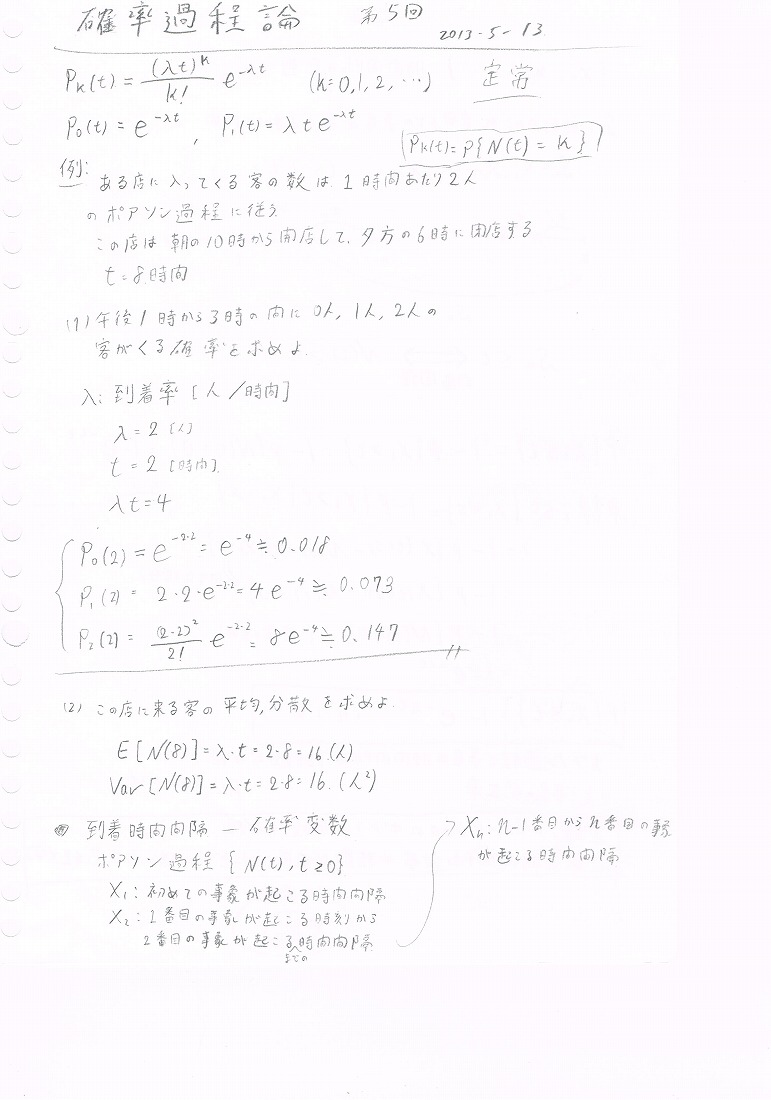 確率過程論 第5回 2013-5-13
Pk(t) = (λt)^k / k! e^{-λt} (k=0,1,2,…) 定常
P0(t) = e^{-λt}, P1(t) = λte^{-λt}
Pk(t)=P{N(t)=k}
例: ある店に入ってくる客の数は1時間あたり2人
のポアソン過程に従う
この店は朝の10時から開店して、夕方の6時に閉店する
t=8時間
(1) 午後1時から3時の内に0人, 1人, 2人の
客がくる確率を求めよ.
λ: 到着率 [人/時間]
λ=2 [人]
t=2 [時間]
λt=4
P0(2) = e^{-2・2} = e^{-4} ≒ 0.018
P1(2) = 2・2・e^{-2・2} = 4e^{-4} ≒ 0.073
P2(2) = (2・2)^2 / 2! e^{-2・2} = 8e^{-4} ≒ 0.147
(2) この店に来る客の平均,分散を求めよ.
E[N(8)] = λ・t = 2・8 = 16.(人)
Var[N(8)] = λ・t = 2・8 = 16. (人^2)
到着時間間隔 — 確率変数
ポアソン過程 {N(t), t≥0}
X1: 初めての事象が起こる時間間隔
X2: 1番目の事象が起こる時刻から
2番目の事象が起こるまでの時間間隔
Xn: n-1番目からn番目の事象
が起こる時間間隔